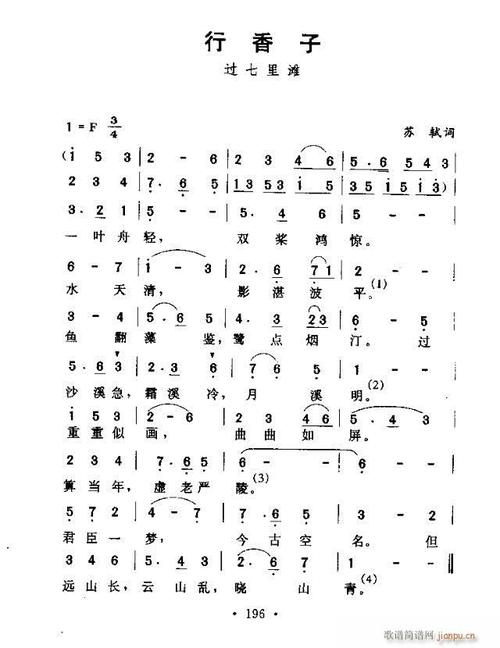 行香子
过七里滩
1=F 3/4
苏轼词
(i 5 3 | 2 - 6 | 2 3 4 6 | 5·6 5 4 3 |
2 3 4 | 7·6 5 | 1 3 5 3 5 | 3 5 i 5 i 5) |
3·2 1 | 5 - - | 5·4 6 | 2 - - |
一叶舟轻，双桨鸿惊。
6 - 7 | i - 3 | 2·6 7 1 | 2 - - |
水天清，影湛波平。(1)
3 - 4 | 5·3 2 5 | 4·3 2 3 | 6 - 5 |
鱼翻藻鉴，鹭点烟汀。过
5·6 3 | 2·3 6 | 7 - 2 | 5 - - |
沙溪急，霜溪冷，月溪明。(2)
i 5 3 | 2 - - | 2·3 4 6 | 5 - - |
重重似画，曲曲如屏。
2 3 4 | 7·6 5 | 6 - - | 6 - - |
算当年，虚老严陵。(3)
5 7 2 | 4 - 7 | 7·6 5 | 2 - 2 |
君臣一梦，今古空名。但
3 4 6 | 5 4 6 | 2·3 2 1 | 5 - - |
远山长，云山乱，晓山青。(4)
· 196 ·
歌谱简谱网
jianpu.cn